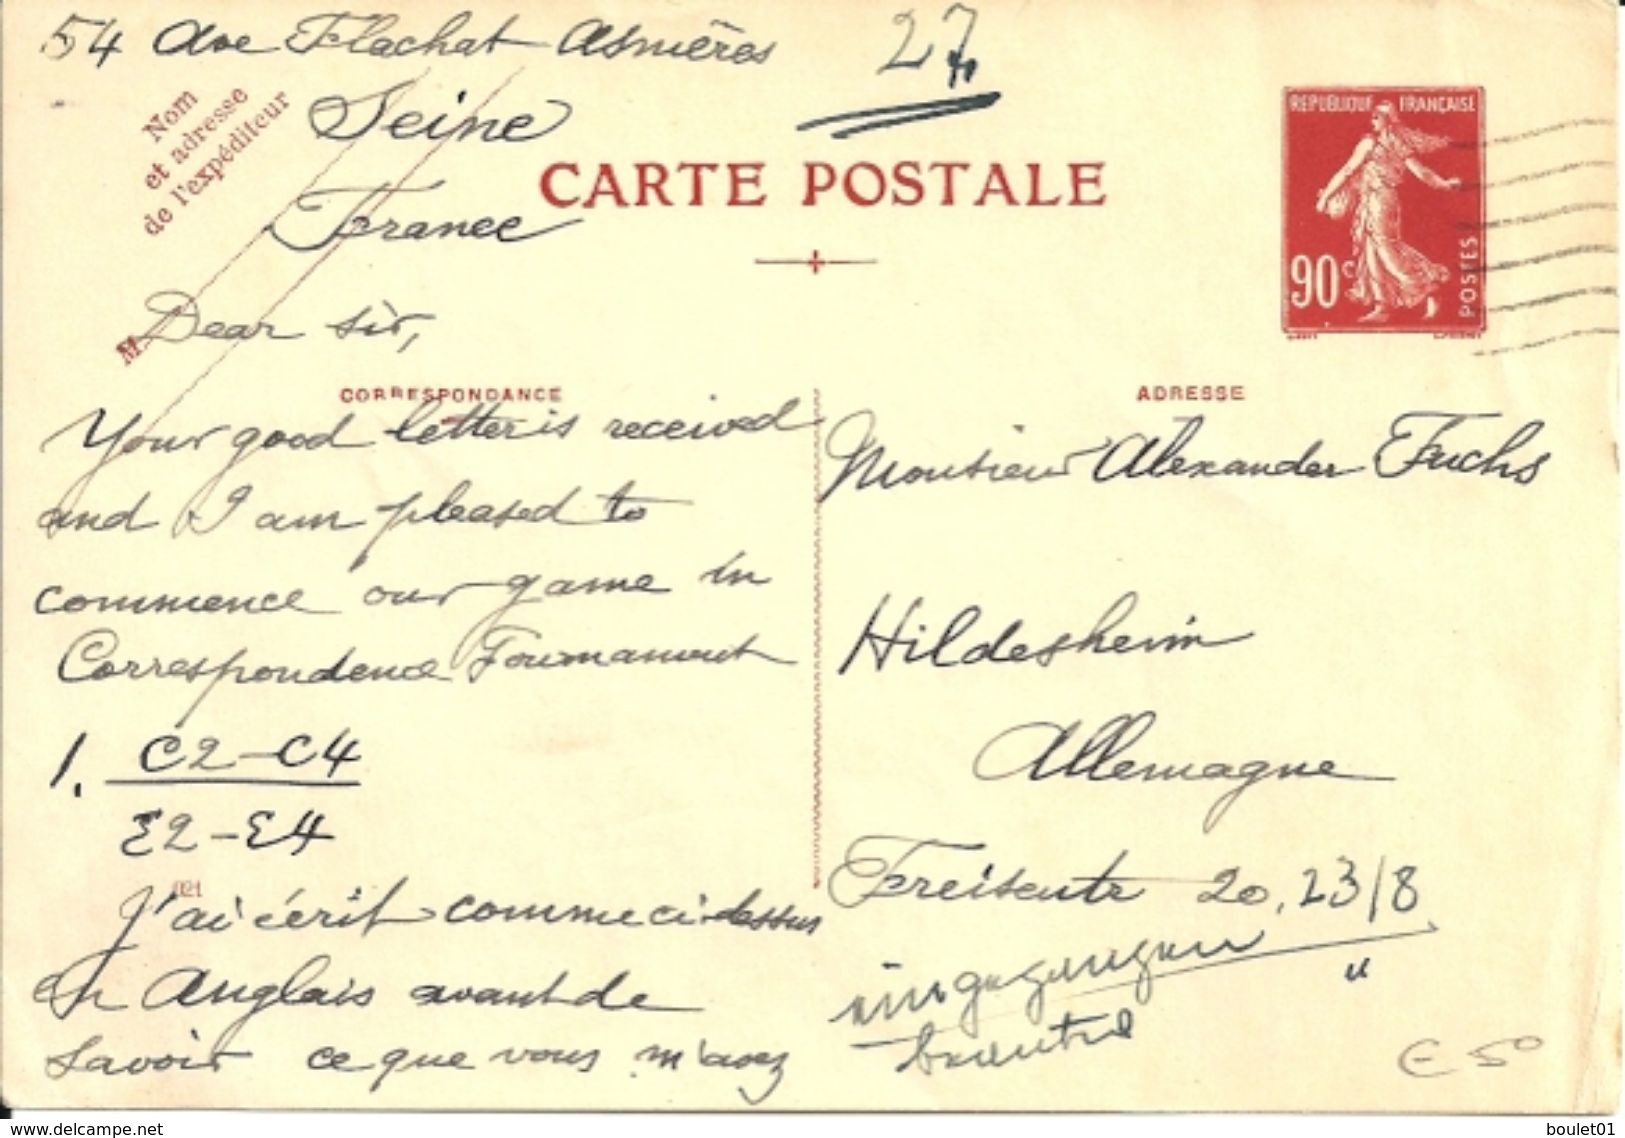 54 Ave Flachat Asnières
27
Seine
France
Nom
et adresse
de l'expéditeur
CARTE POSTALE
REPUBLIQUE FRANÇAISE
90c
POSTES
M.
Dear Sir,
CORRESPONDANCE
Your good letter is received
and I am pleased to
commence our game in
Correspondence Tournament
1. C2-C4
E2-E4
021
J'ai écrit comme ci-dessus
en Anglais avant de
savoir ce que vous m'avez
ADRESSE
Monsieur Alexander Fuchs
Hildesheim
Allemagne
20, 23/8
eingegangen "
€ 50
www.delcampe.net
boulet01